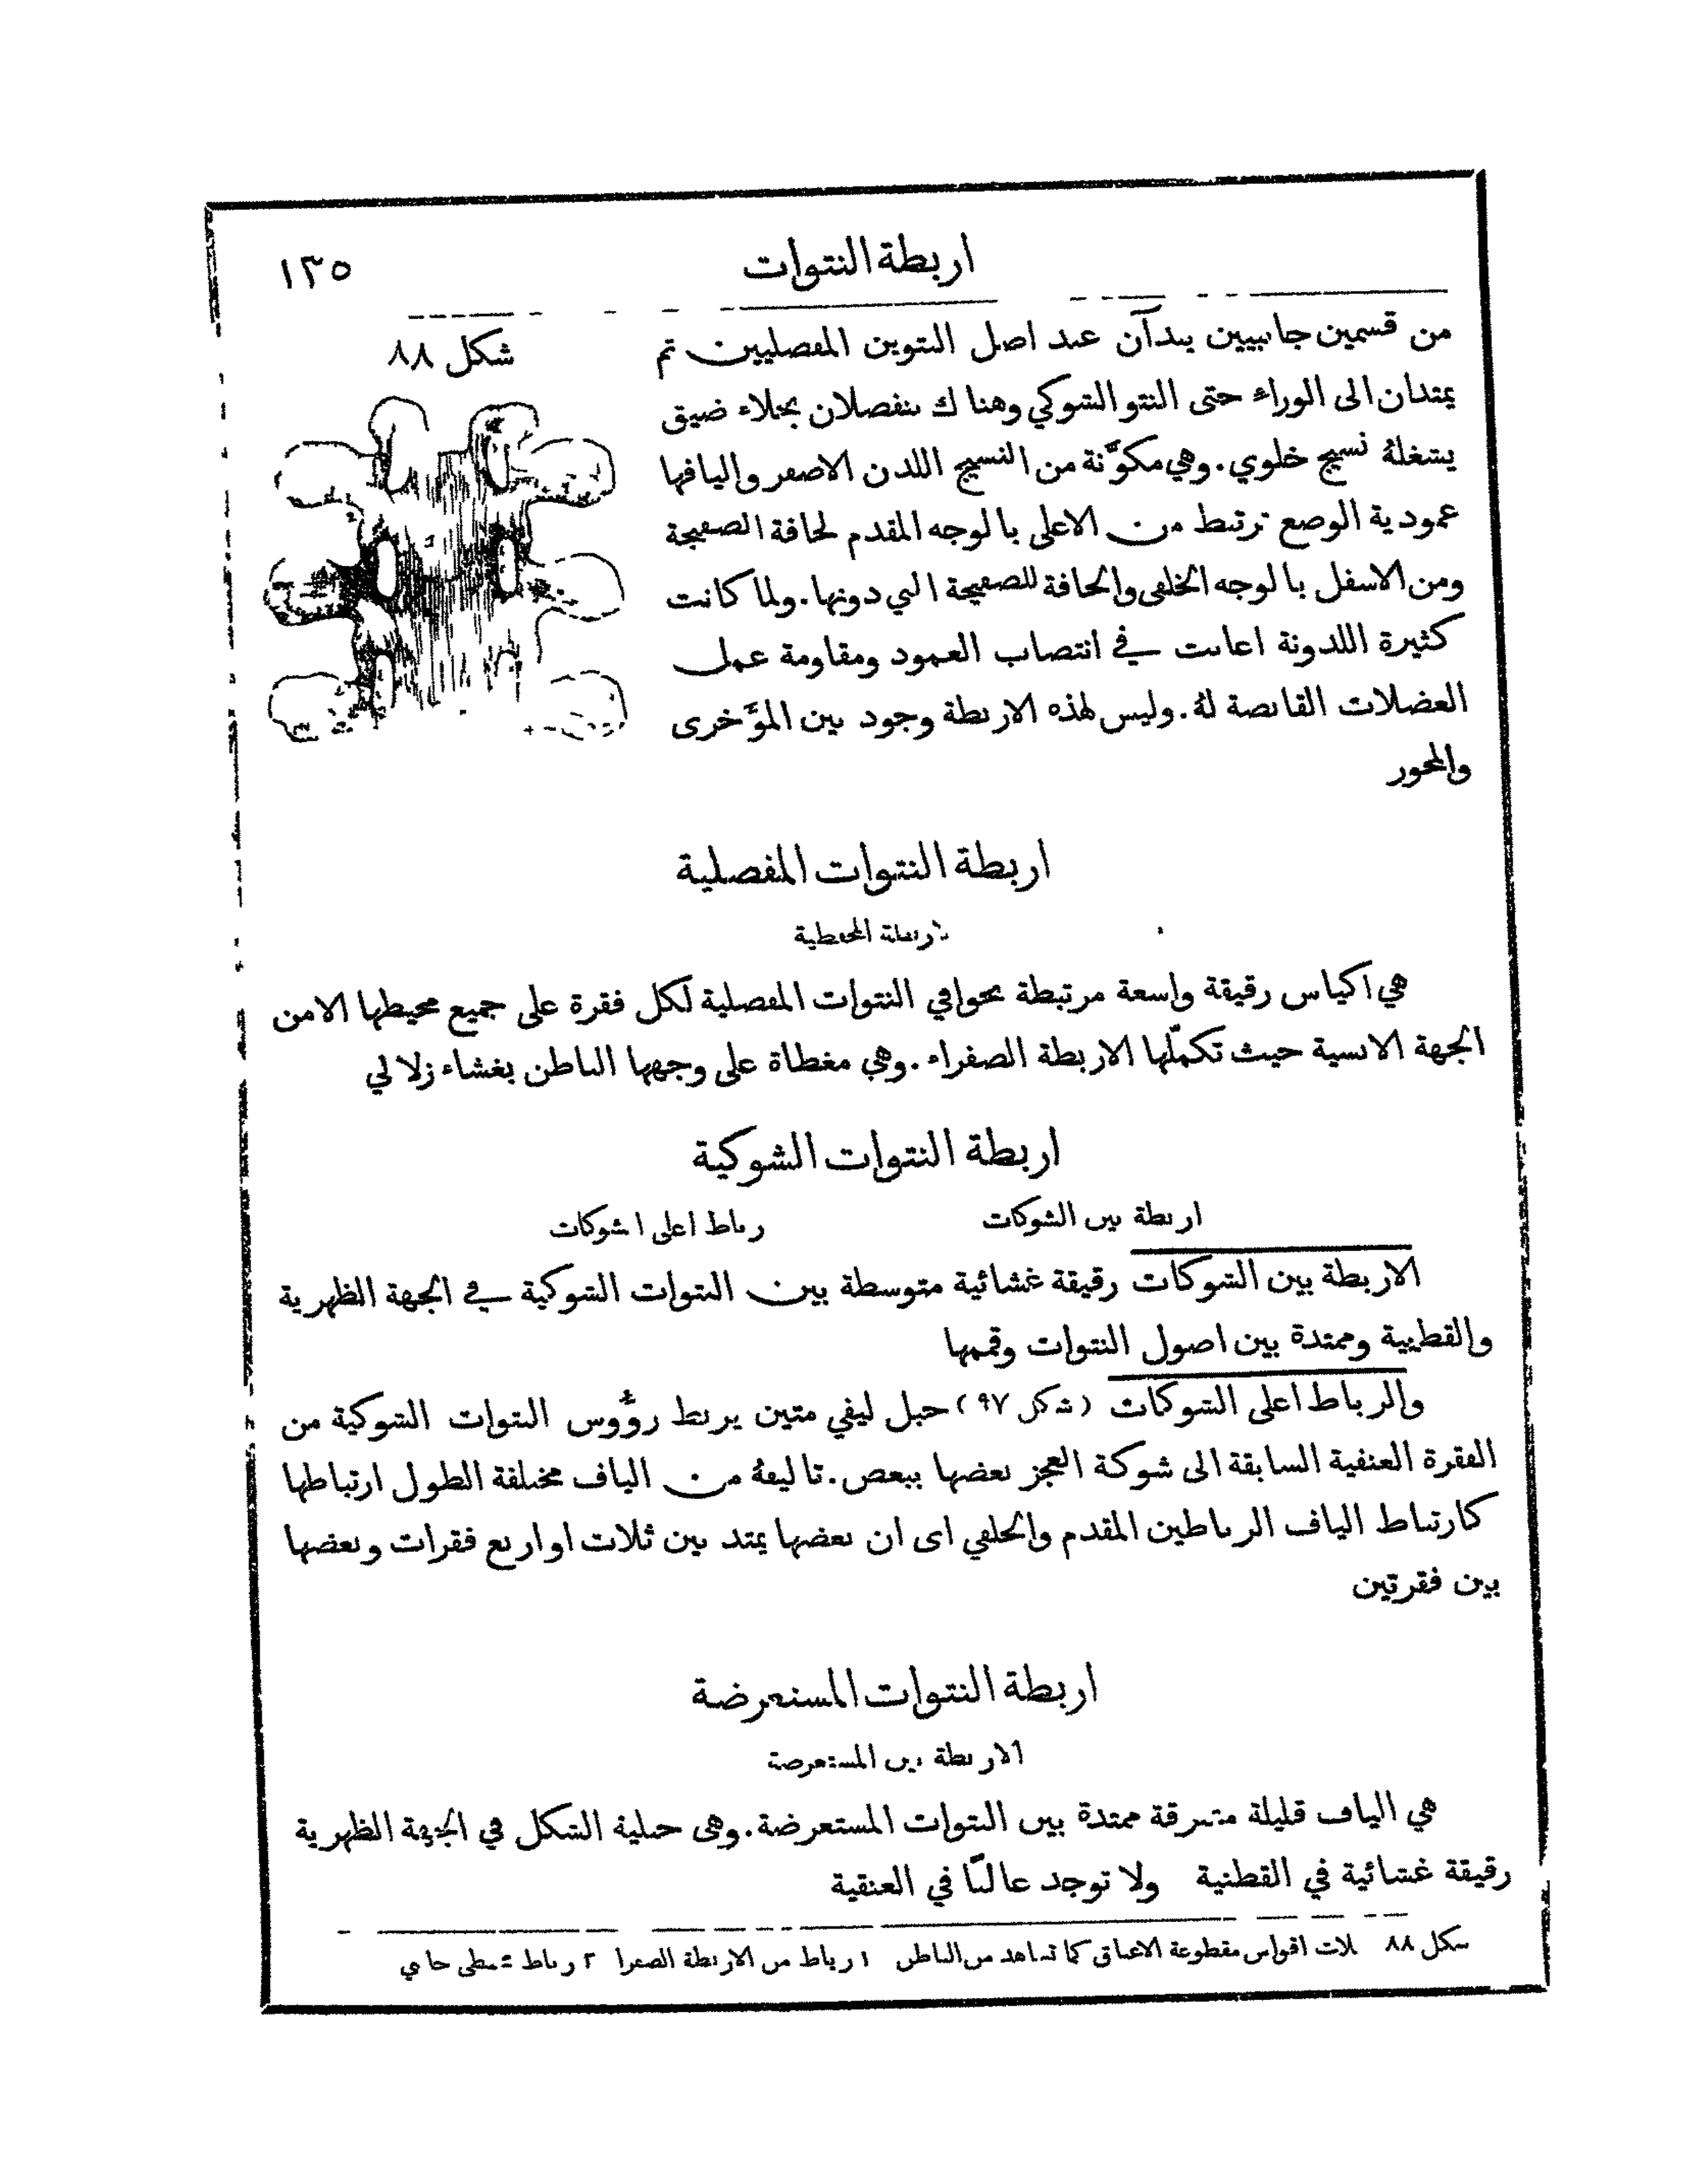 اربطة النتوات
١٣٥
شكل ٨٨
من قسمين جانبيين يبدآن عند اصل النتوين المفصليين ثم
يمتدان الى الوراء حتى النتو الشوكي وهناك ينفصلان بخلاء ضيق
يشغلهُ نسيج خلوي. وهي مكوَّنة من النسيج اللدن الاصفر واليافها
عمودية الوضع ترتبط من الاعلى بالوجه المقدم لحافة الصفيحة
ومن الاسفل بالوجه الخلفي والحافة للصفيحة التي دونها. ولما كانت
كثيرة اللدونة اعانت في انتصاب العمود ومقاومة عمل
العضلات القابضة لهُ. وليس لهذه الاربطة وجود بين المؤَخرى
والمحور
اربطة النتوات المفصلية
المحفظية
هي اكياس رقيقة واسعة مرتبطة بحوافي النتوات المفصلية لكل فقرة على جميع محيطها الا من
الجهة الانسية حيث تكمّلها الاربطة الصفراء. وهي مغطاة على وجهها الباطن بغشاء زلالي
اربطة النتوات الشوكية
اربطة بين الشوكات
رباط اعلى الشوكات
الاربطة بين الشوكات رقيقة غشائية متوسطة بين النتوات الشوكية في الجهة الظهرية
والقطنية وممتدة بين اصول النتوات وقممها
والرباط اعلى الشوكات (شكل ٩٧) حبل ليفي متين يربط رؤُوس النتوات الشوكية من
الفقرة العنقية السابقة الى شوكة العجز بعضها ببعض. تاليفهُ من الياف مختلفة الطول ارتباطها
كارتباط الياف الرباطين المقدم والخلفي اى ان بعضها يمتد بين ثلاث او اربع فقرات وبعضها
بين فقرتين
اربطة النتوات المستعرضة
الاربطة بين المستعرضة
هي الياف قليلة متفرقة ممتدة بين النتوات المستعرضة. وهى حبلية الشكل في الجهة الظهرية
رقيقة غشائية في القطنية ولا توجد غالبًا في العنقية
شكل ٨٨ ثلاث اقواس مقطوعة الاعناق كما تشاهد من الباطن ١ رباط من الاربطة الصفرا ٢ رباط محفظي